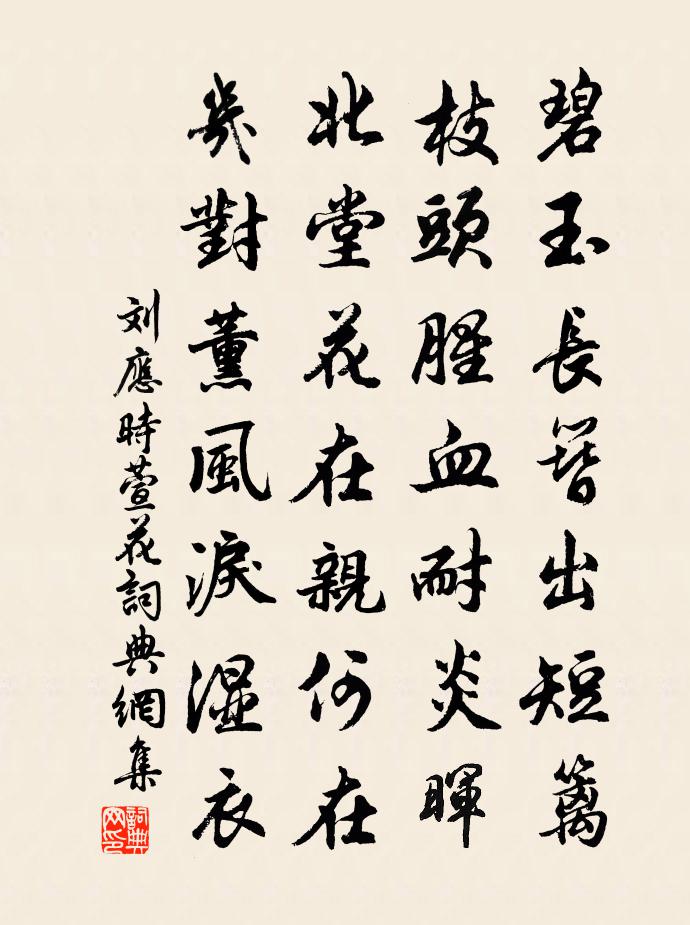 碧玉長簪出短篱
枝頭腥血耐炎暉
北堂花在親何在
幾對薰風淚湿衣
刘應時萱花詞典網集
詞典网印